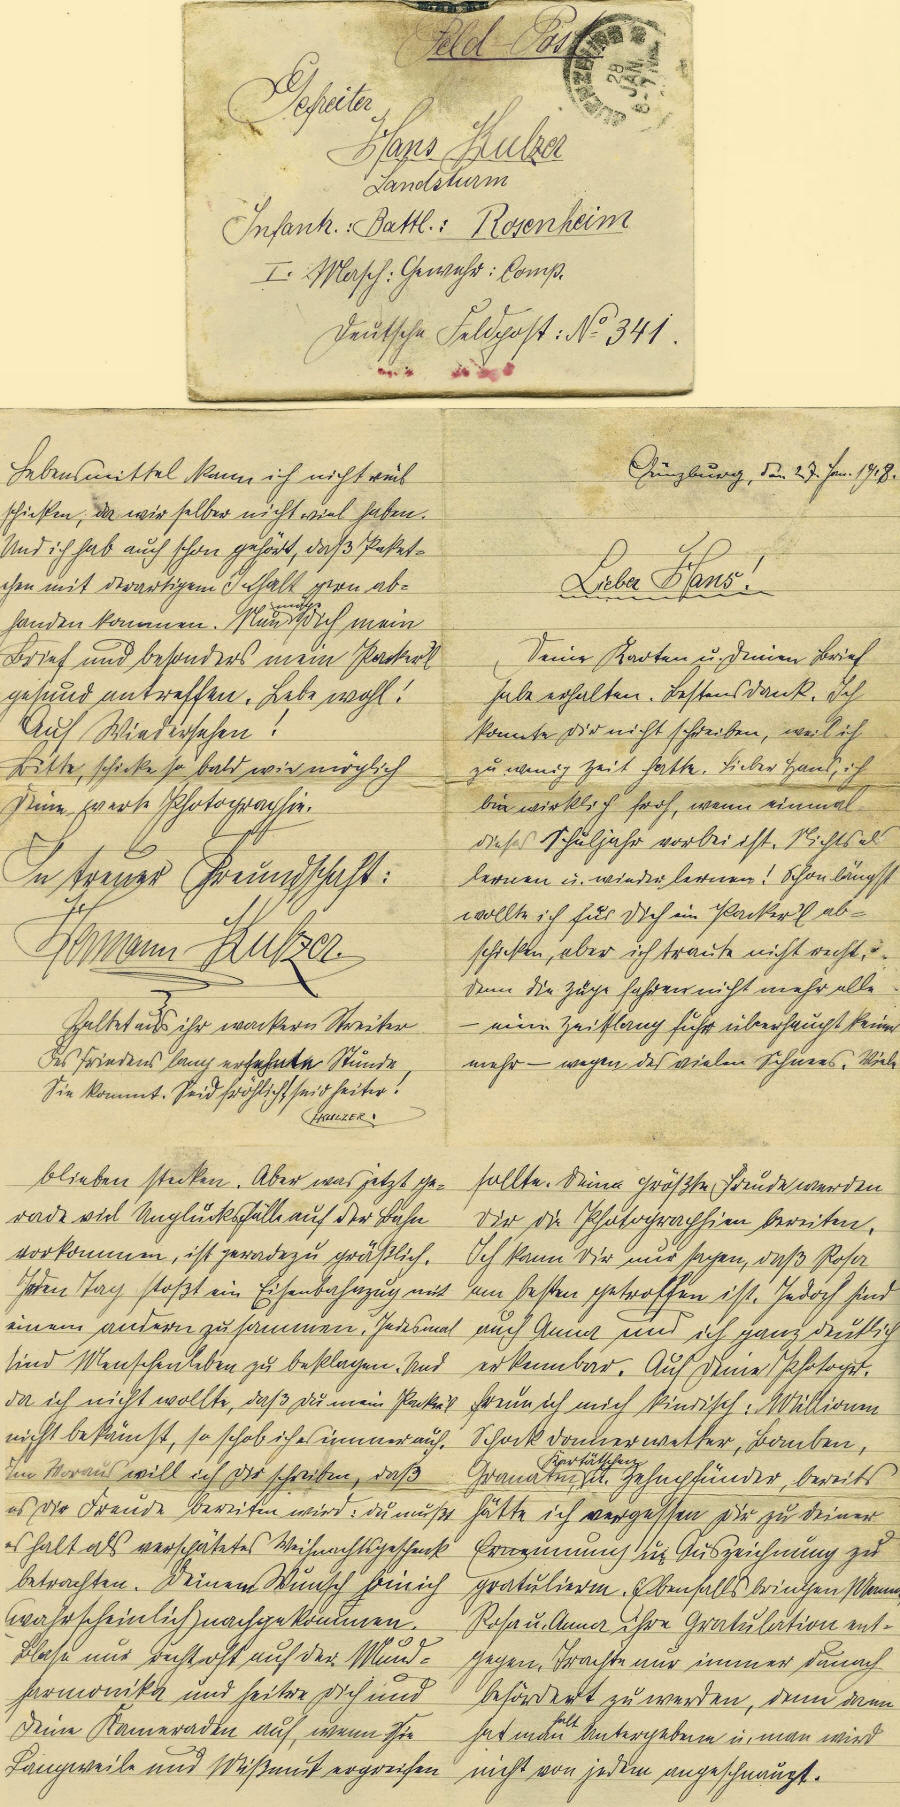 Feld-Post
GUENZBURG
28
JAN.
6-7 N
Gefreiter
Hans Kulzer
Landsturm
Infantr.: Battl.: Rosenheim
I. Masch: Gewehr: Comp.
Deutsche Feldpost: No 341.
Günzburg, den 27. Jan. 1918.
Lieber Hans!
Deine Karten u. Deinen Brief
habe erhalten. Bestens dank. Ich
konnte Dir nicht schreiben, weil ich
zu wenig Zeit hatte. Lieber Hans, ich
bin wirklich froh, wenn einmal
dieses Schuljahr vorbei ist. Nichts als
lernen u. wieder lernen! Schon längst
wollte ich für Dich ein Packerl ab=
schicken, aber ich traute nicht recht,
denn die Züge fahren nicht mehr alle
– eine Zeitlang fuhr überhaupt keiner
mehr – wegen des vielen Schnees. Viele
blieben stecken. Aber was jetzt ge=
rade viel Unglücksfälle auf der Bahn
vorkommen, ist geradezu gräßlich.
Jeden Tag stoßt ein Eisenbahnzug mit
einem andern zusammen. Jedesmal
sind Menschenleben zu beklagen. Und
da ich nicht wollte, daß Du mein Packerl
nicht bekämst, so schob ich es immer auf.
Im Voraus will ich Dir schreiben, daß
es Dir Freude bereiten wird: du mußt
es halt als verspätetes Weihnachtsgeschenk
betrachten. Deinem Wunsch bin ich
(wahrscheinlich) nachgekommen.
Blase nur recht oft auf der Mund=
harmonika und heitre Dich und
Deine Kameraden auf, wenn Sie
Langweile und Mißmut ergreifen
sollte. Deine größte Freude werden
Dir die Photographien bereiten.
Ich kann Dir nur sagen, daß Rosa
am besten getroffen ist. Jedoch sind
auch Anna und ich ganz deutlich
erkennbar. Auf Deine Photogr.
freue ich mich kindisch: Millionen
Schock donnerwetter, Bomben,
Granaten, Kartätschen u. Zehnpfünder, bereits
hätte ich vergessen Dir zu deiner
Ernennung u. Auszeichnung zu
gratulieren. Ebenfalls bringen Mama,
Rosa u. Anna ihre Gratulation ent=
gegen. Trachte nur immer danach
befördert zu werden, denn dann
hat man halt Untergebene u. man wird
nicht von jedem angeschnauzt.
Lebensmittel kann ich nicht viel
schicken, da wir selber nicht viel haben.
Und ich hab auch schon gehört, daß Paket=
chen mit derartigem Inhalt gern ab=
handen kommen. Nun möge Dich mein
Brief und besonders mein Packerl
gesund antreffen. Lebe wohl!
Auf Wiedersehen!
Bitte, schicke so bald wie möglich
Deine werte Photographie.
In treuer Freundschaft:
Hermann Kulzer.
Haltet aus ihr wackern Streiter
Des Friedens lang ersehnte Stunde,
Sie kommt. Seid fröhlich, seid heiter!
H.KULZER.